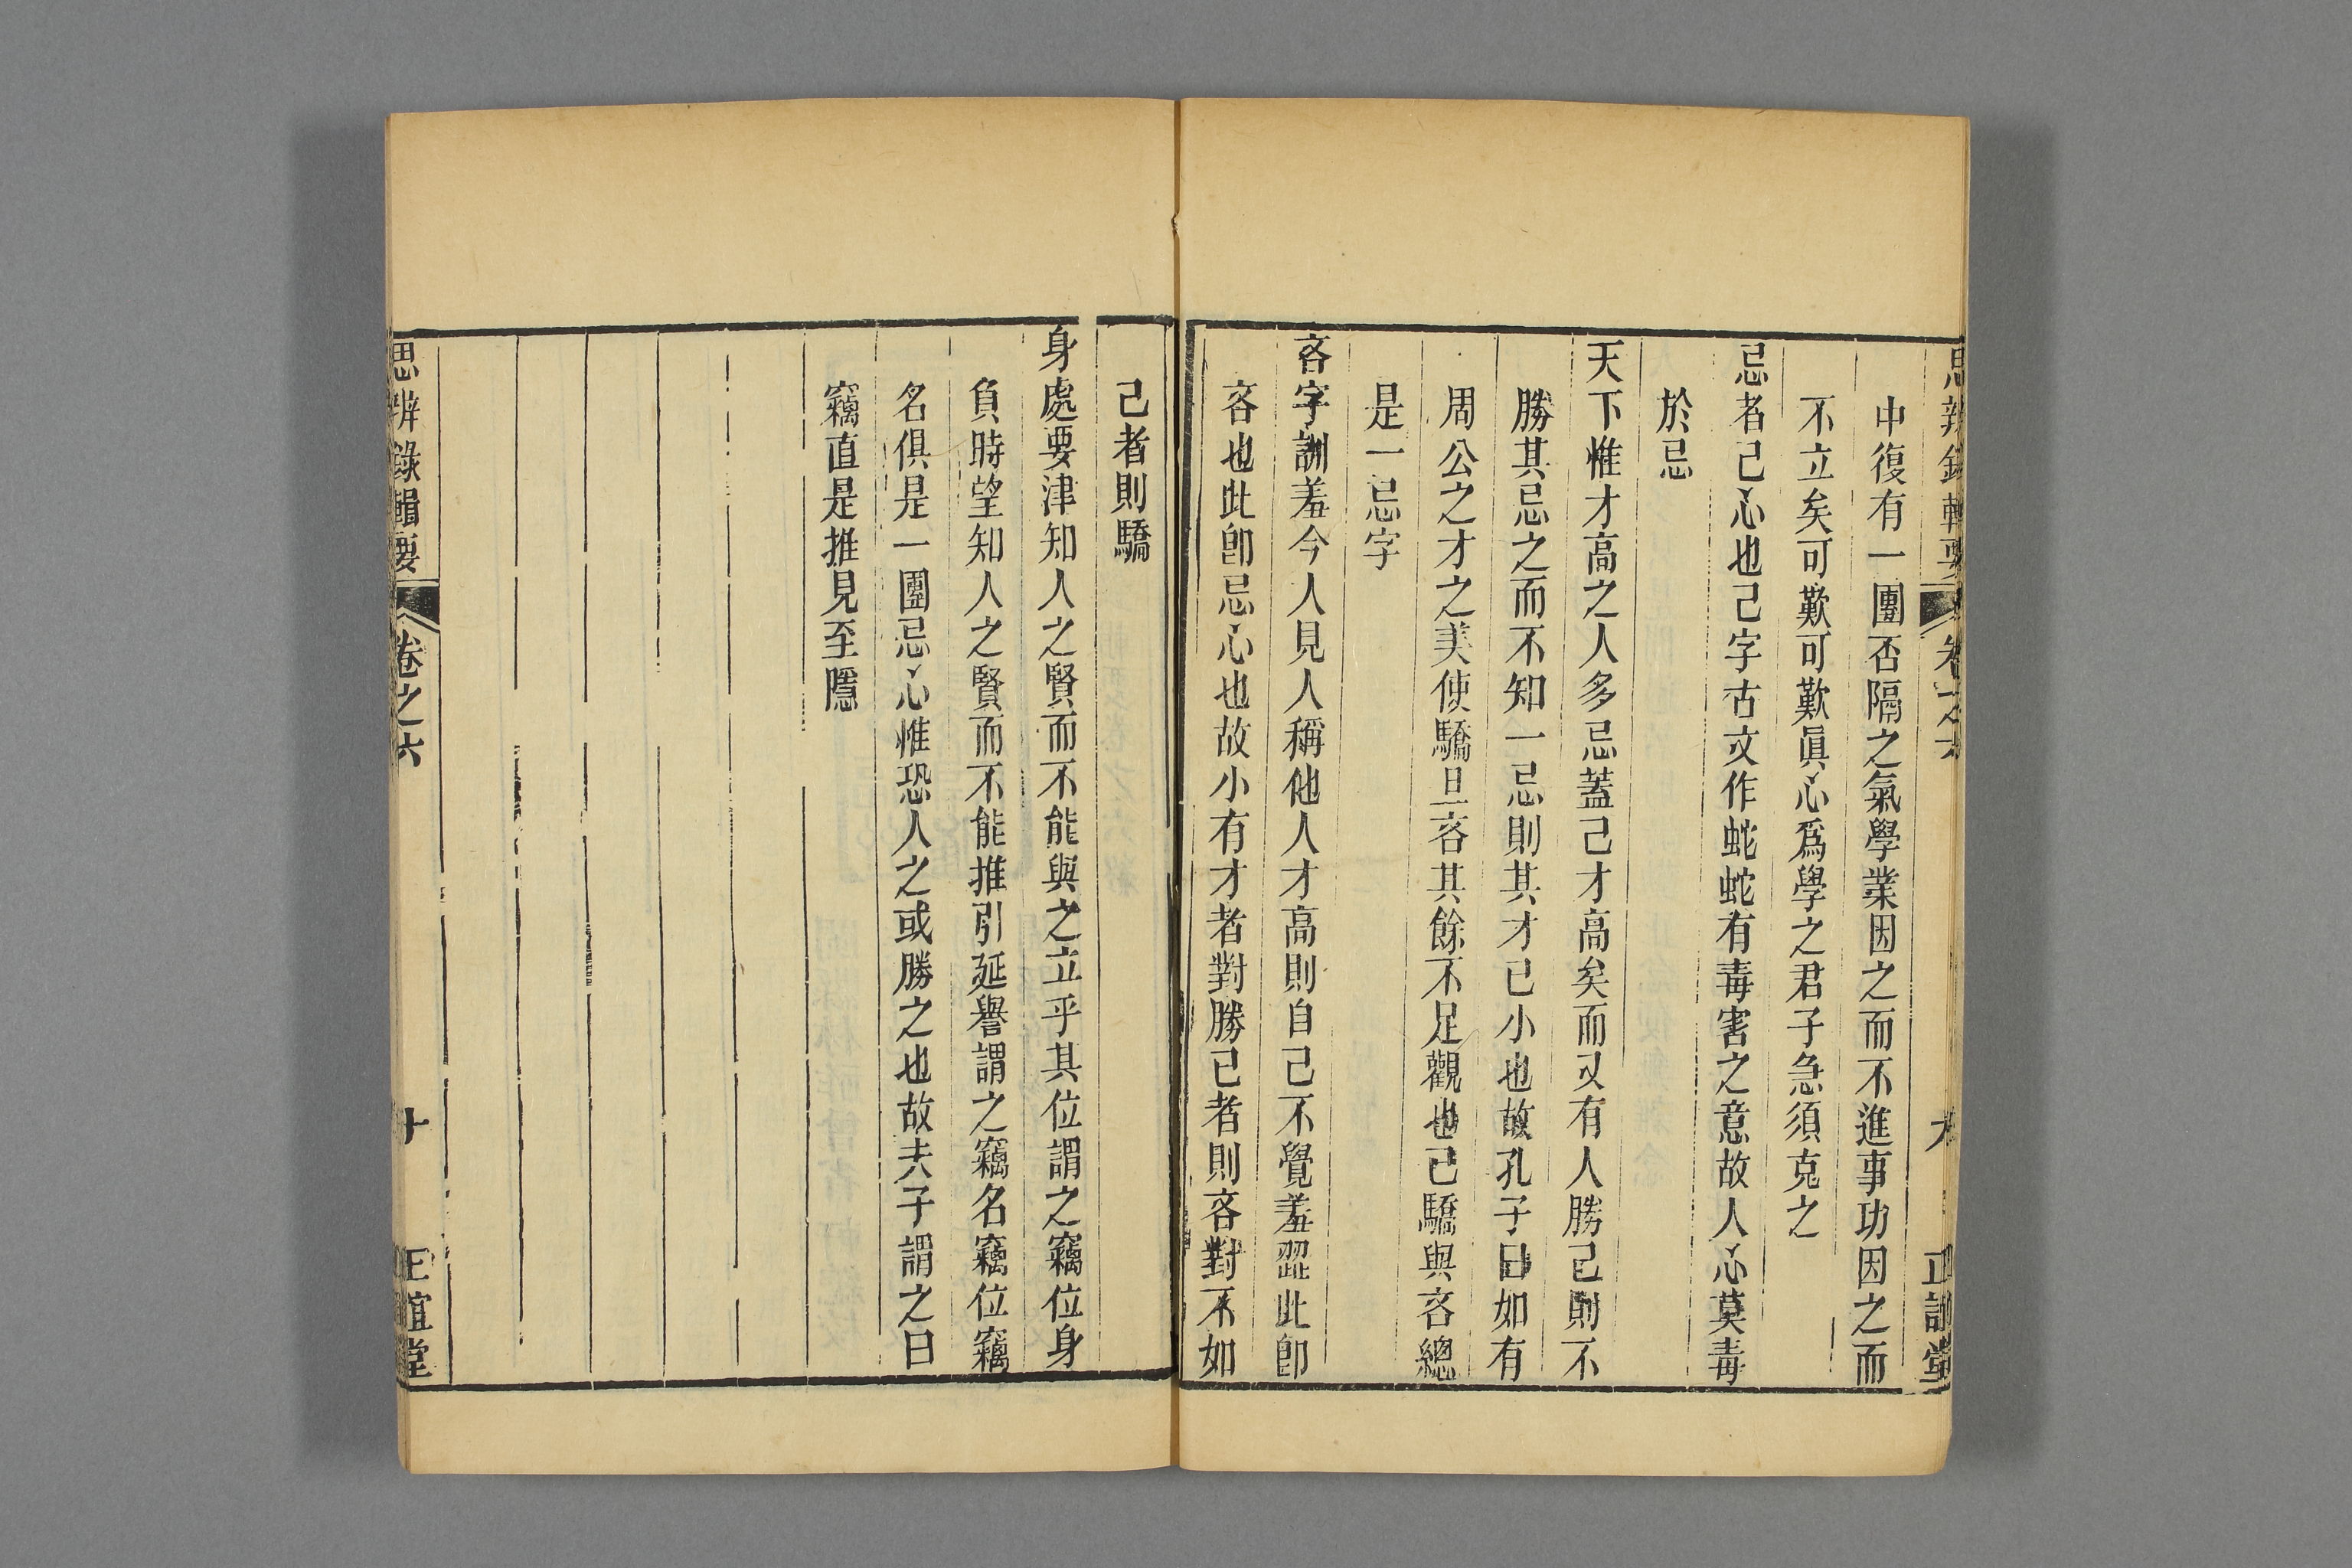 思辨錄輯要 卷之六 九 正誼堂
中復有一團否隔之氣學業因之而不進事功因之而
不立矣可歎可歎眞心爲學之君子急須克之
忌者己心也己字古文作蛇蛇有毒害之意故人心莫毒
於忌
天下惟才高之人多忌蓋己才高矣而又有人勝己則不
勝其忌之而不知一忌則其才已小也故孔子曰如有
周公之才之美使驕且吝其餘不足觀也已驕與吝總
是一忌字
吝字訓羞今人見人稱他人才高則自己不覺羞澀此卽
吝也此卽忌心也故小有才者對勝己者則吝對不如
己者則驕
身處要津知人之賢而不能與之立乎其位謂之竊位身
負時望知人之賢而不能推引延譽謂之竊名竊位竊
名俱是一團忌心惟恐人之或勝之也故夫子謂之曰
竊直是推見至隱
思辨錄輯要 卷之六 十 正誼堂